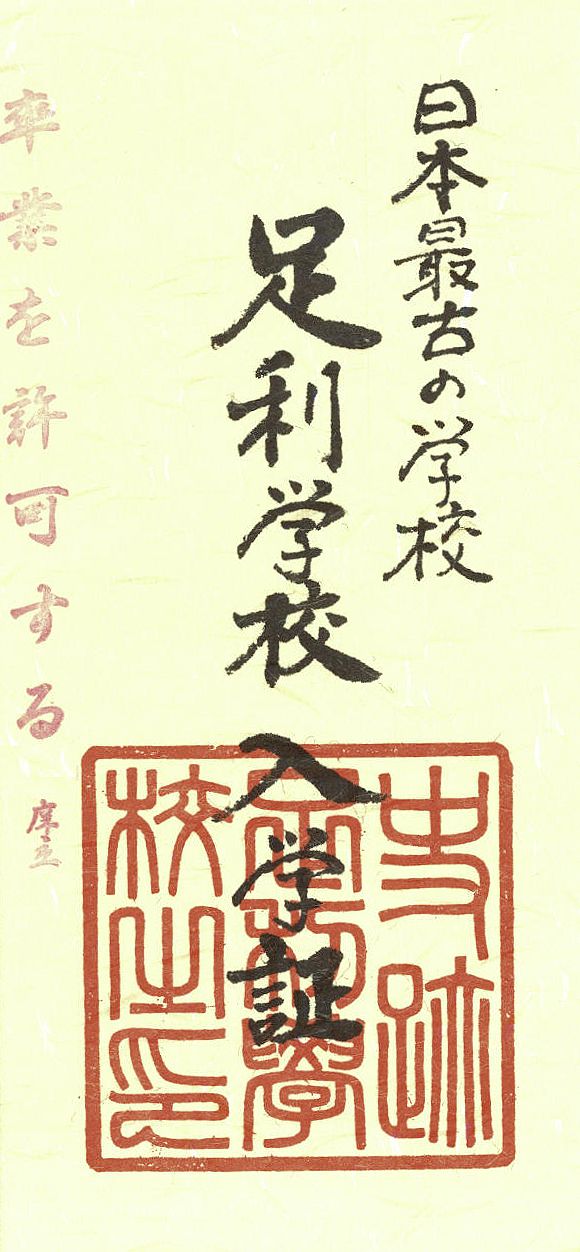 日本最古の学校
足利学校 入学証
史跡
足利學
校之印
卒業を許可する